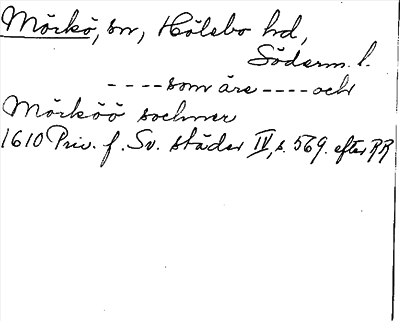 Mörkö, sn, Hölebo hd,
Söderm. l.
- - - - som äre - - - - och
Mörköö sochner
1610 Priv. f. Sv. städer IV, s. 569. efter RR